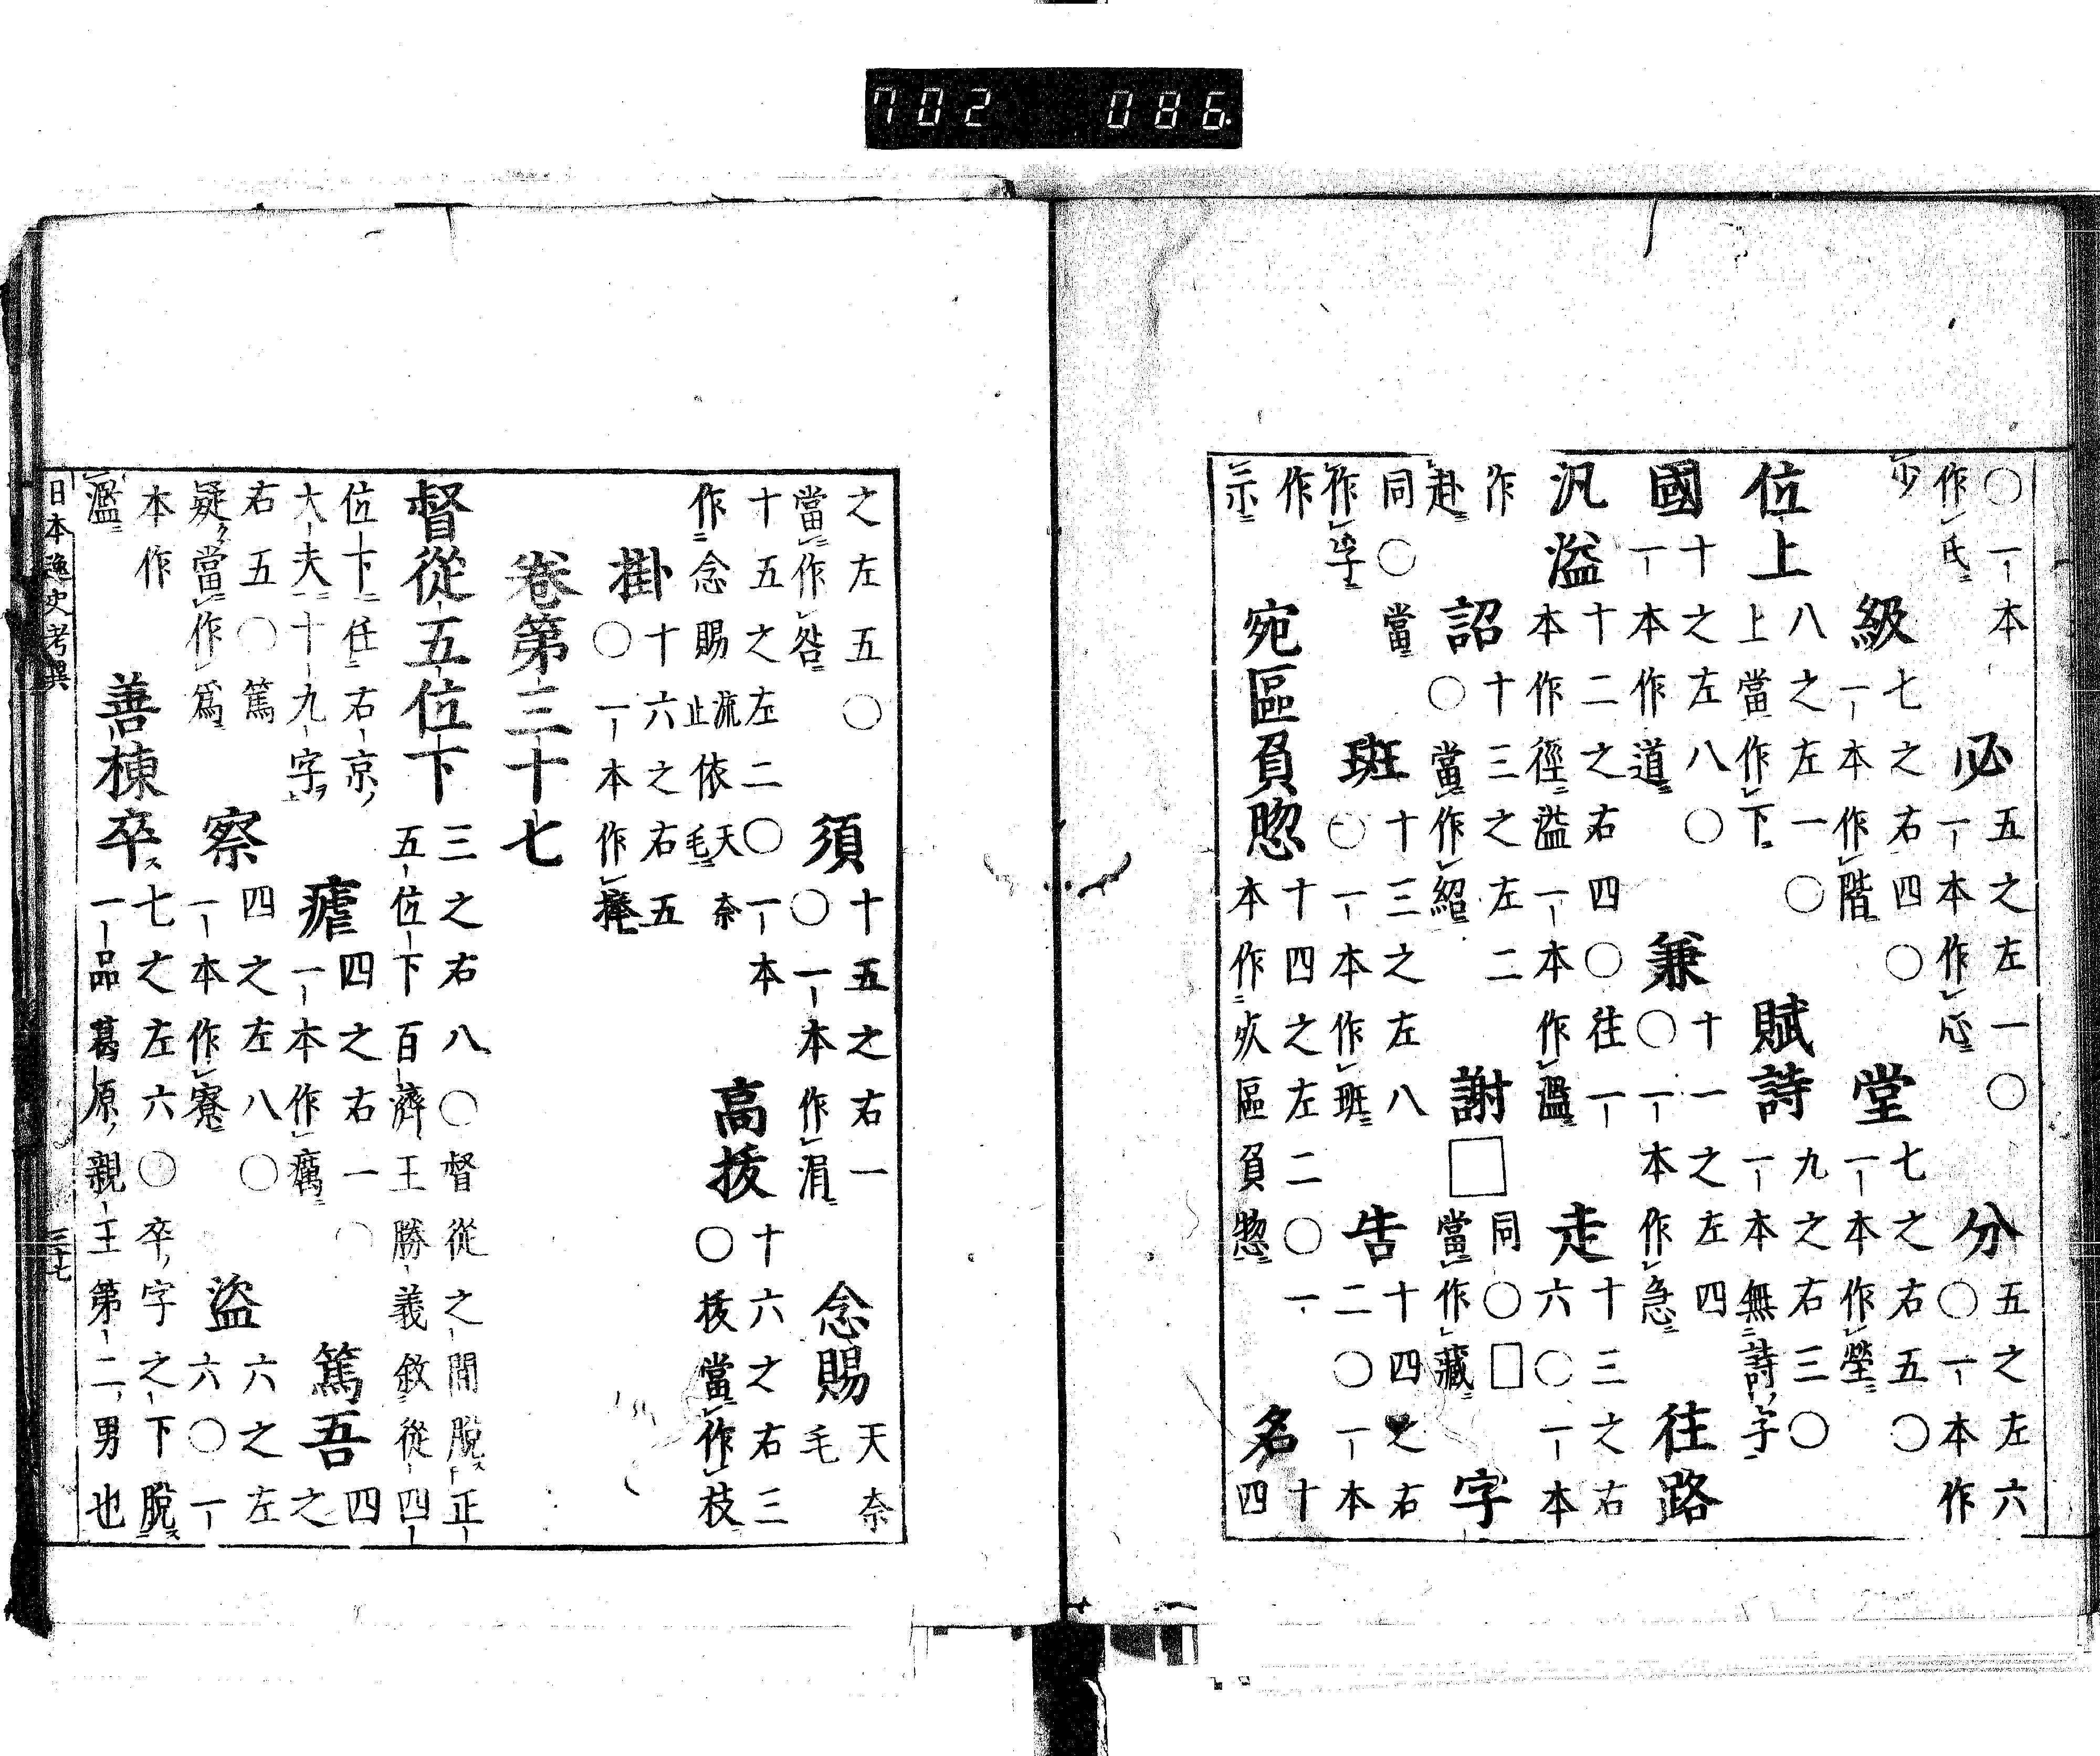 ○一本作氏必五之左一○一本作心分五之左六○一本作
少級七之右四○一本作階堂七之右五○一本作瑩
位上八之左一○上當作下賦詩九之右三○一本無詩子
國十之左八○一本作道兼十一之左四○一本作急往路
汎溢十二之右四○往一本作徑溢一本作溫走十三之右六○一本
作赴詔十三之左二○當作紹謝□同○□當作藏字
同○當作孚班十三之左八○一本作班告十四之右二○一本
作示宛區負惣十四之左二○一本作區負惣名十四
之左五○當作咎須十五之右一○一本作涓念賜天奈毛
十五之左二○一本作念賜流止依天毛奈高拔十六之右三○拔當作枝
掛十六之右五○一本作捲
卷第三十七
督從五位下三之右八○督從之間脫正五位下百濟王勝義敘從四
位下任右京大夫十九字瘧四之右一○一本作癘篤吾四之
右五○篤疑當作爲察四之左八○一本作寮盜六之左六○一
本作濫善棟卒七之左六○卒字之下脫一品葛原親王第二男也
日本逸史考異 三十七
702 086